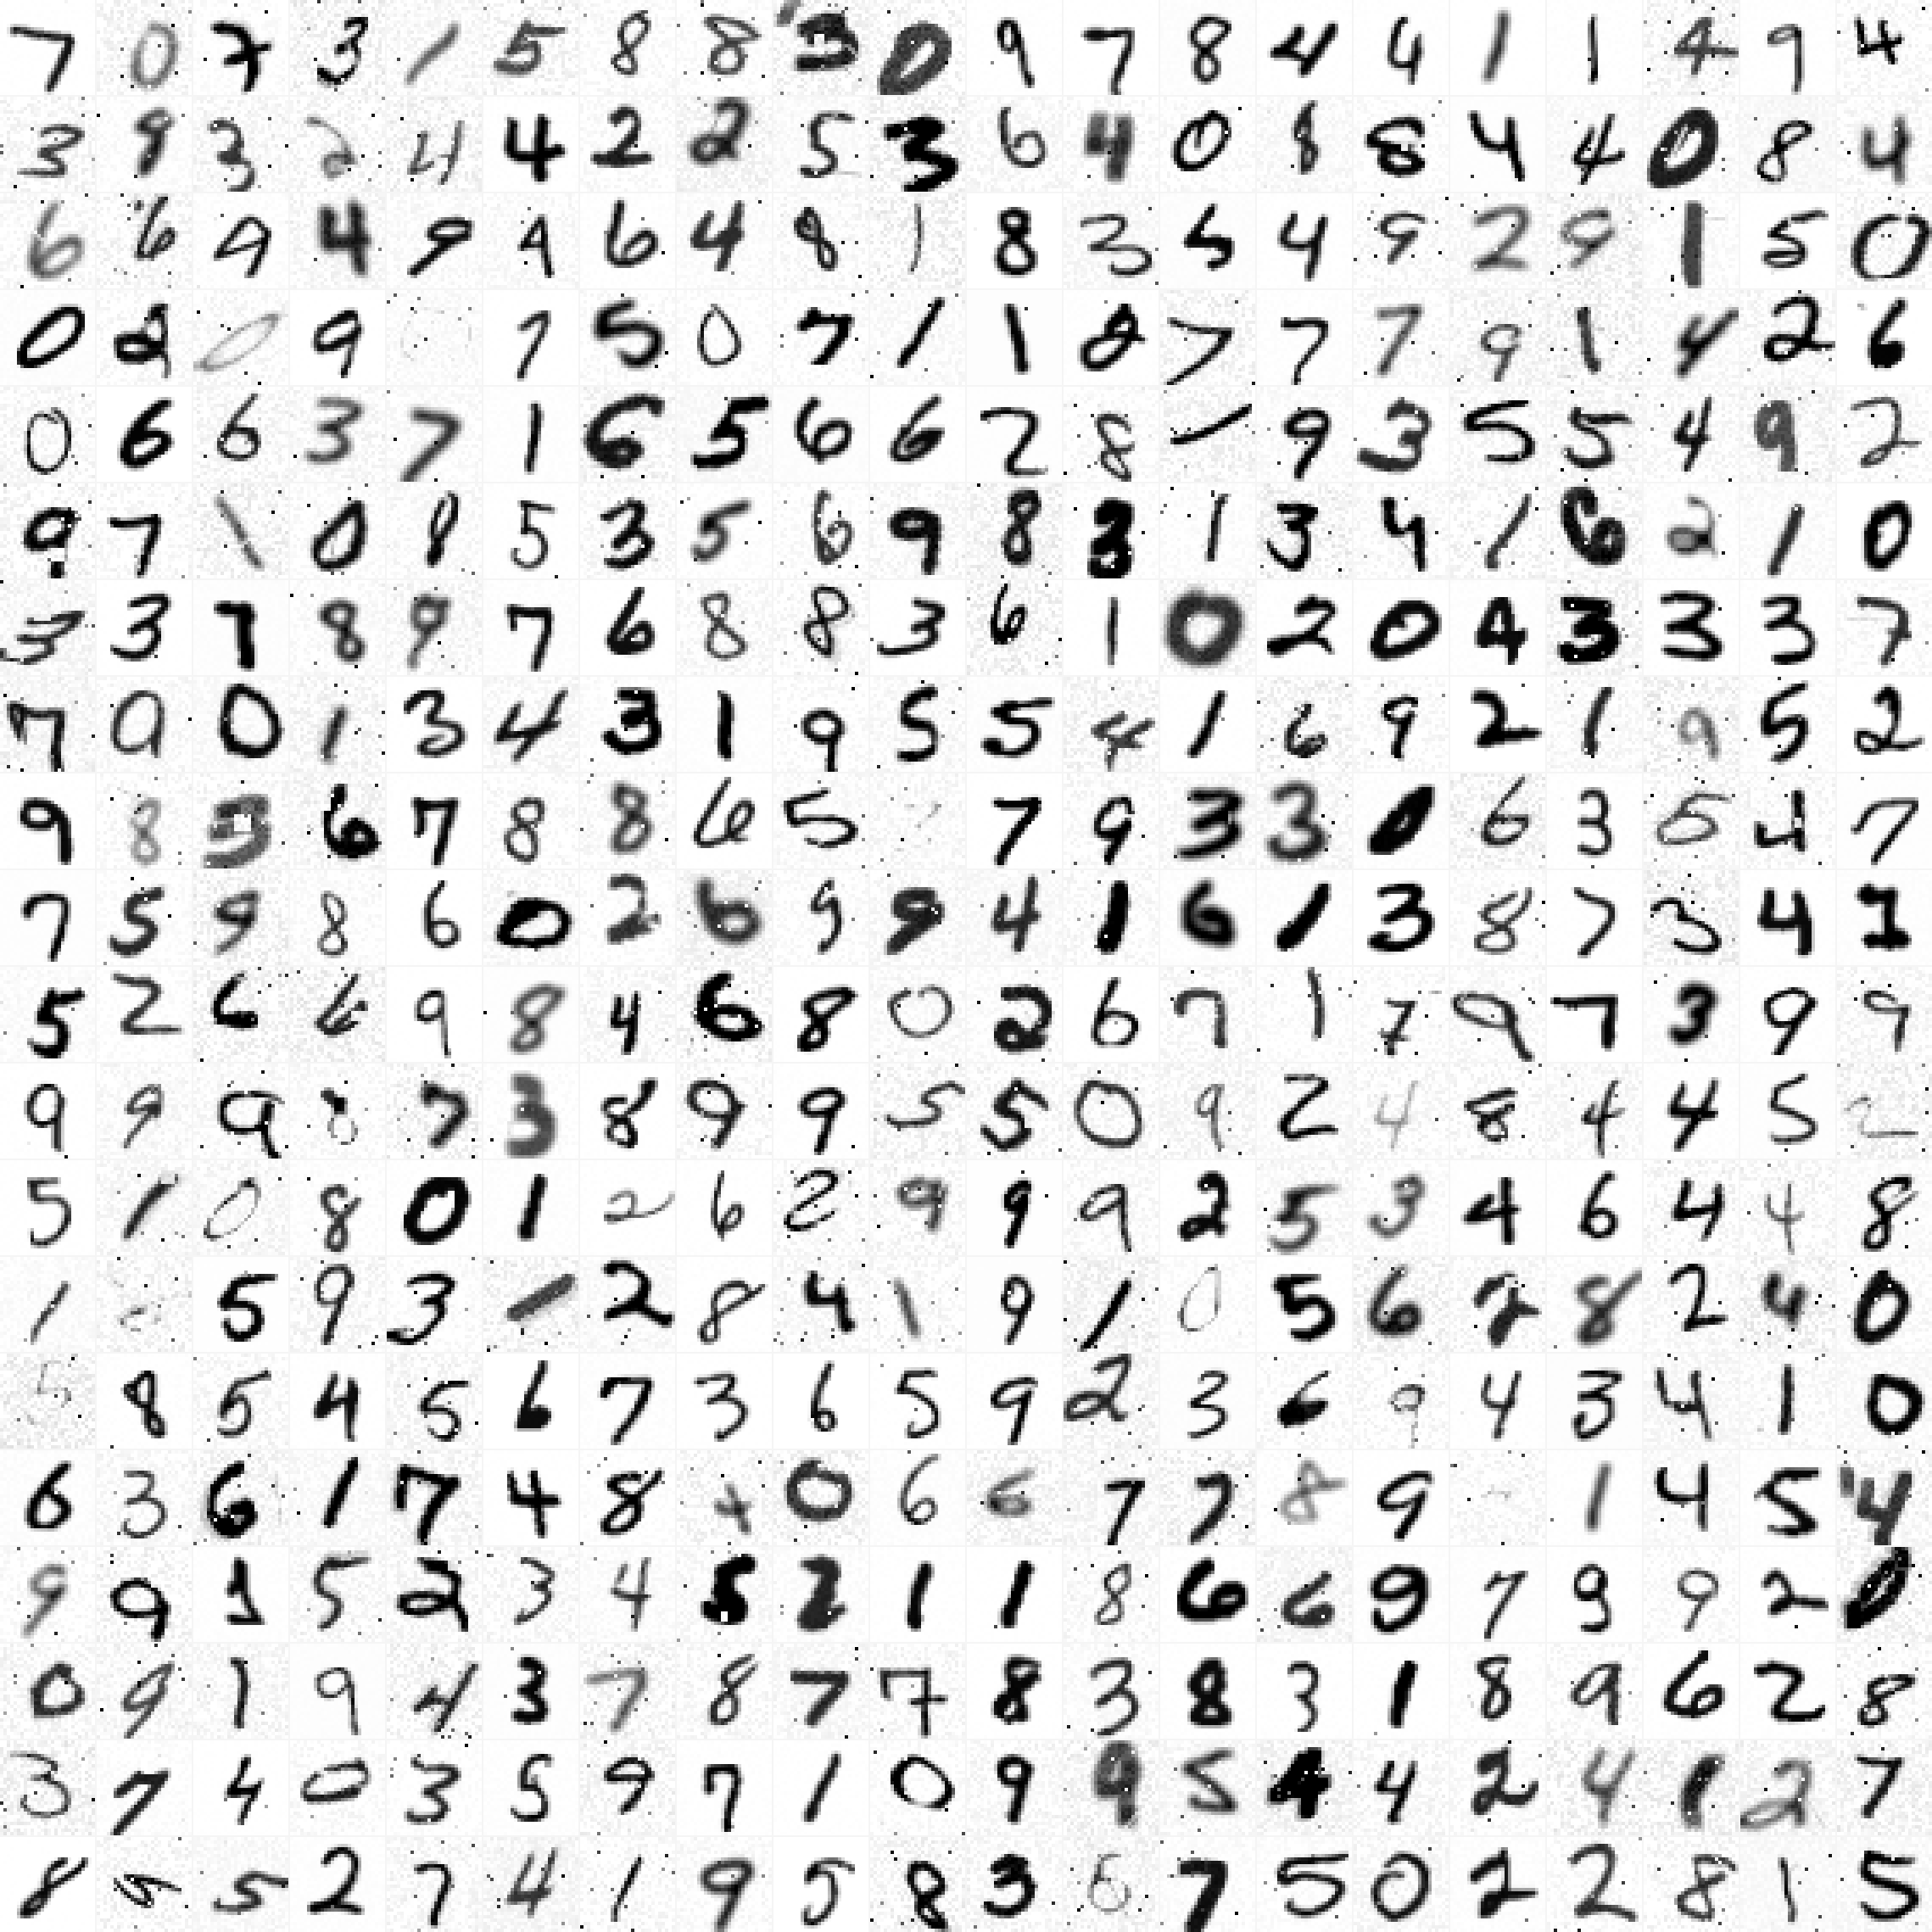 7 0 7 3 1 5 8 8 3 0 9 7 8 4 4 1 1 4 9 4
3 9 3 2 4 4 2 2 5 3 6 4 0 8 8 4 4 0 8 4
6 6 9 4 9 9 6 4 8 1 8 3 5 4 9 2 9 1 5 0
0 2 0 9 7 5 0 7 1 1 8 7 7 7 9 1 4 2 6
0 6 6 3 7 1 6 5 6 6 2 8 1 9 3 5 5 4 9 2
9 7 1 0 8 5 3 5 6 9 8 3 1 3 4 1 6 2 1 0
3 3 7 8 9 7 6 8 8 3 6 1 0 2 0 4 3 3 3 7
7 0 0 1 3 4 3 1 9 5 5 4 1 6 9 2 1 9 5 2
9 8 3 6 7 8 8 6 5 7 9 3 3 0 6 3 5 4 7
7 5 9 8 6 0 2 6 9 9 4 1 6 1 3 8 7 3 4 1
5 2 6 6 9 8 4 6 8 0 2 6 7 1 7 9 7 3 9 9
9 9 9 8 7 3 8 9 9 5 5 0 9 2 4 8 4 4 5 2
5 1 0 8 0 1 2 6 2 9 9 9 2 5 3 4 6 4 4 8
1 5 9 3 1 2 8 4 1 9 1 0 5 6 2 8 2 4 0
5 8 5 4 5 6 7 3 6 5 9 2 3 6 9 4 3 4 1 0
6 3 6 1 7 4 8 4 0 6 6 7 7 8 9 1 4 5 4
9 9 1 5 2 3 4 5 2 1 1 8 6 6 9 7 9 9 2 0
0 9 1 9 4 3 7 8 7 7 8 3 8 3 1 8 9 6 2 8
3 7 4 0 3 5 9 7 1 0 9 9 5 4 4 2 4 1 2 7
8 5 2 7 4 1 9 5 8 3 6 7 5 0 2 2 8 1 5